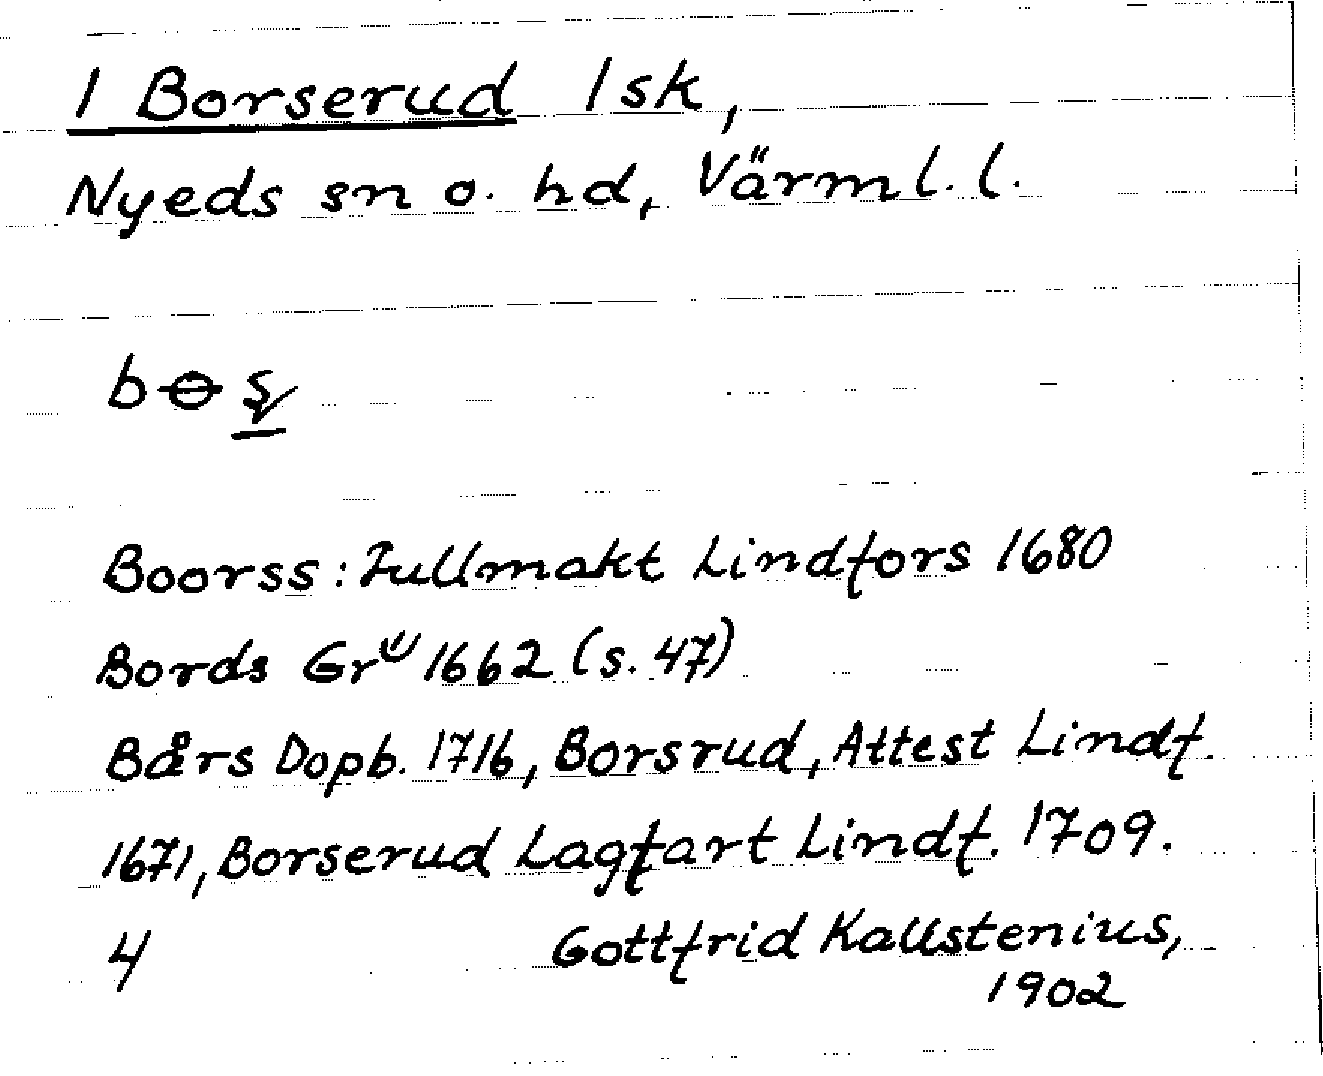 1 Borserud 1 sk,
Nyeds sn o. hd, Värml. l.
Boorss: Fullmakt Lindfors 1680
Bords Gr 1662 (s. 47)
Bårs Dopb. 1716, Borsrud, Attest Lindf.
1671, Borserud Lagfart Lindf. 1709.
4 Gottfrid Kallstenius,
1902